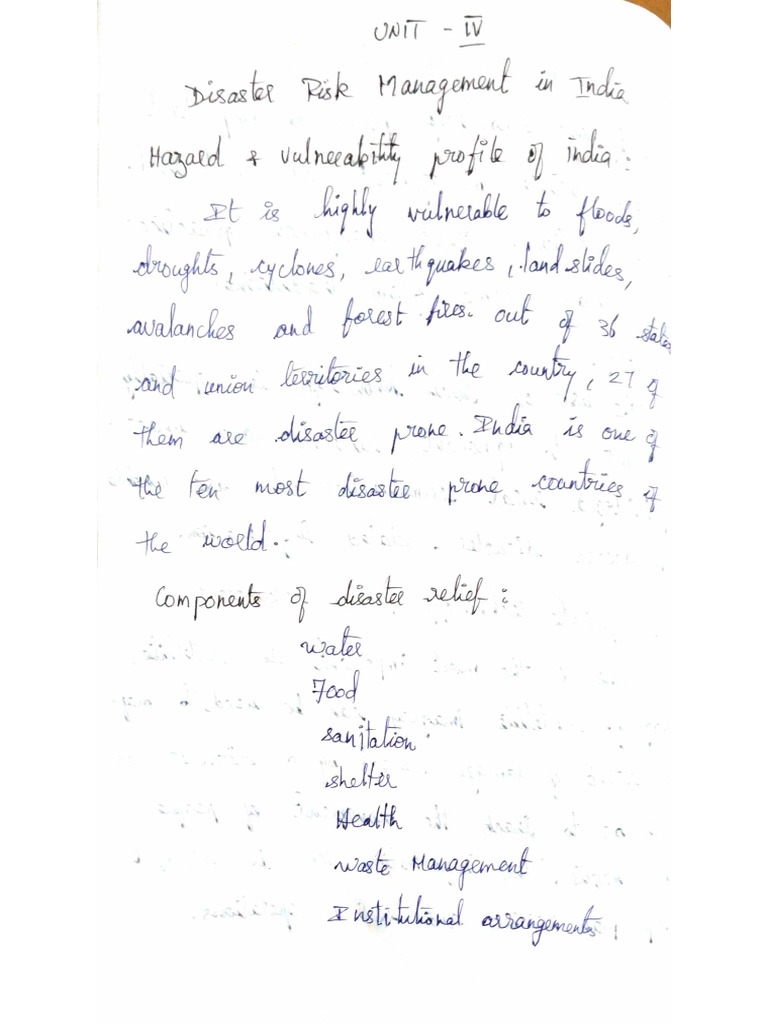 UNIT - IV
Disaster Risk Management in India
Hazard & vulnerability profile of india:
It is highly vulnerable to floods,
droughts, cyclones, earthquakes, land slides,
avalanches and forest fires. out of 36 states
and union territories in the country, 27 of
them are disaster prone. India is one of
the ten most disaster prone countries of
the world.
Components of disaster relief:
water
Food
sanitation
shelter
Health
waste Management
Institutional arrangements